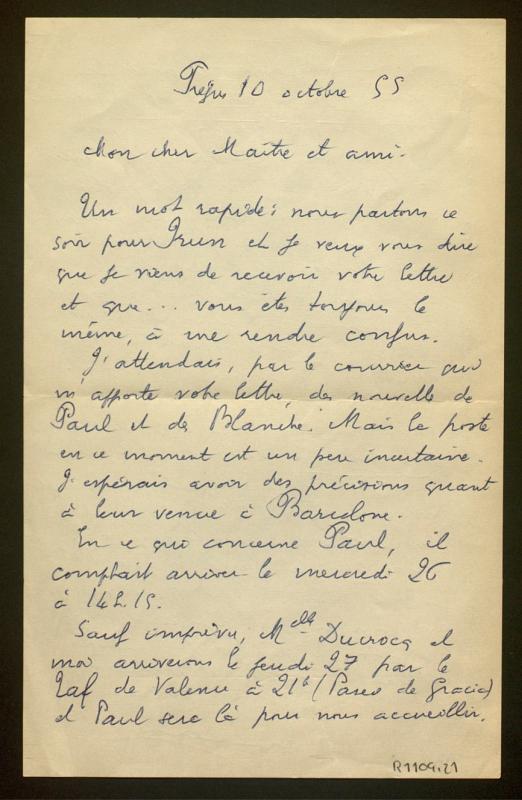 Fréjus 10 octobre 55
Mon cher Maître et ami.
Un mot rapide: nous partons ce
soir pour Irun et je veux vous dire
que je viens de recevoir votre lettre
et que... vous êtes toujours le
même, à me rendre confus.
J'attendais, par le courrier qui
m'apporte votre lettre, des nouvelle de
Paul et de Blanche. Mais la poste
en ce moment est un peu incertaine.
J'espérais avoir des précisions quant
à leur venue à Barcelone.
En ce qui concerne Paul, il
comptait arriver le mercredi 26
à 14h.15.
Sauf imprévu, Melle Ducrocq et
moi arriverons le jeudi 27 par le
Taf de Valence à 21h (Paseo de Gracia)
et Paul sera là pour nous accueillir.
R1109.21